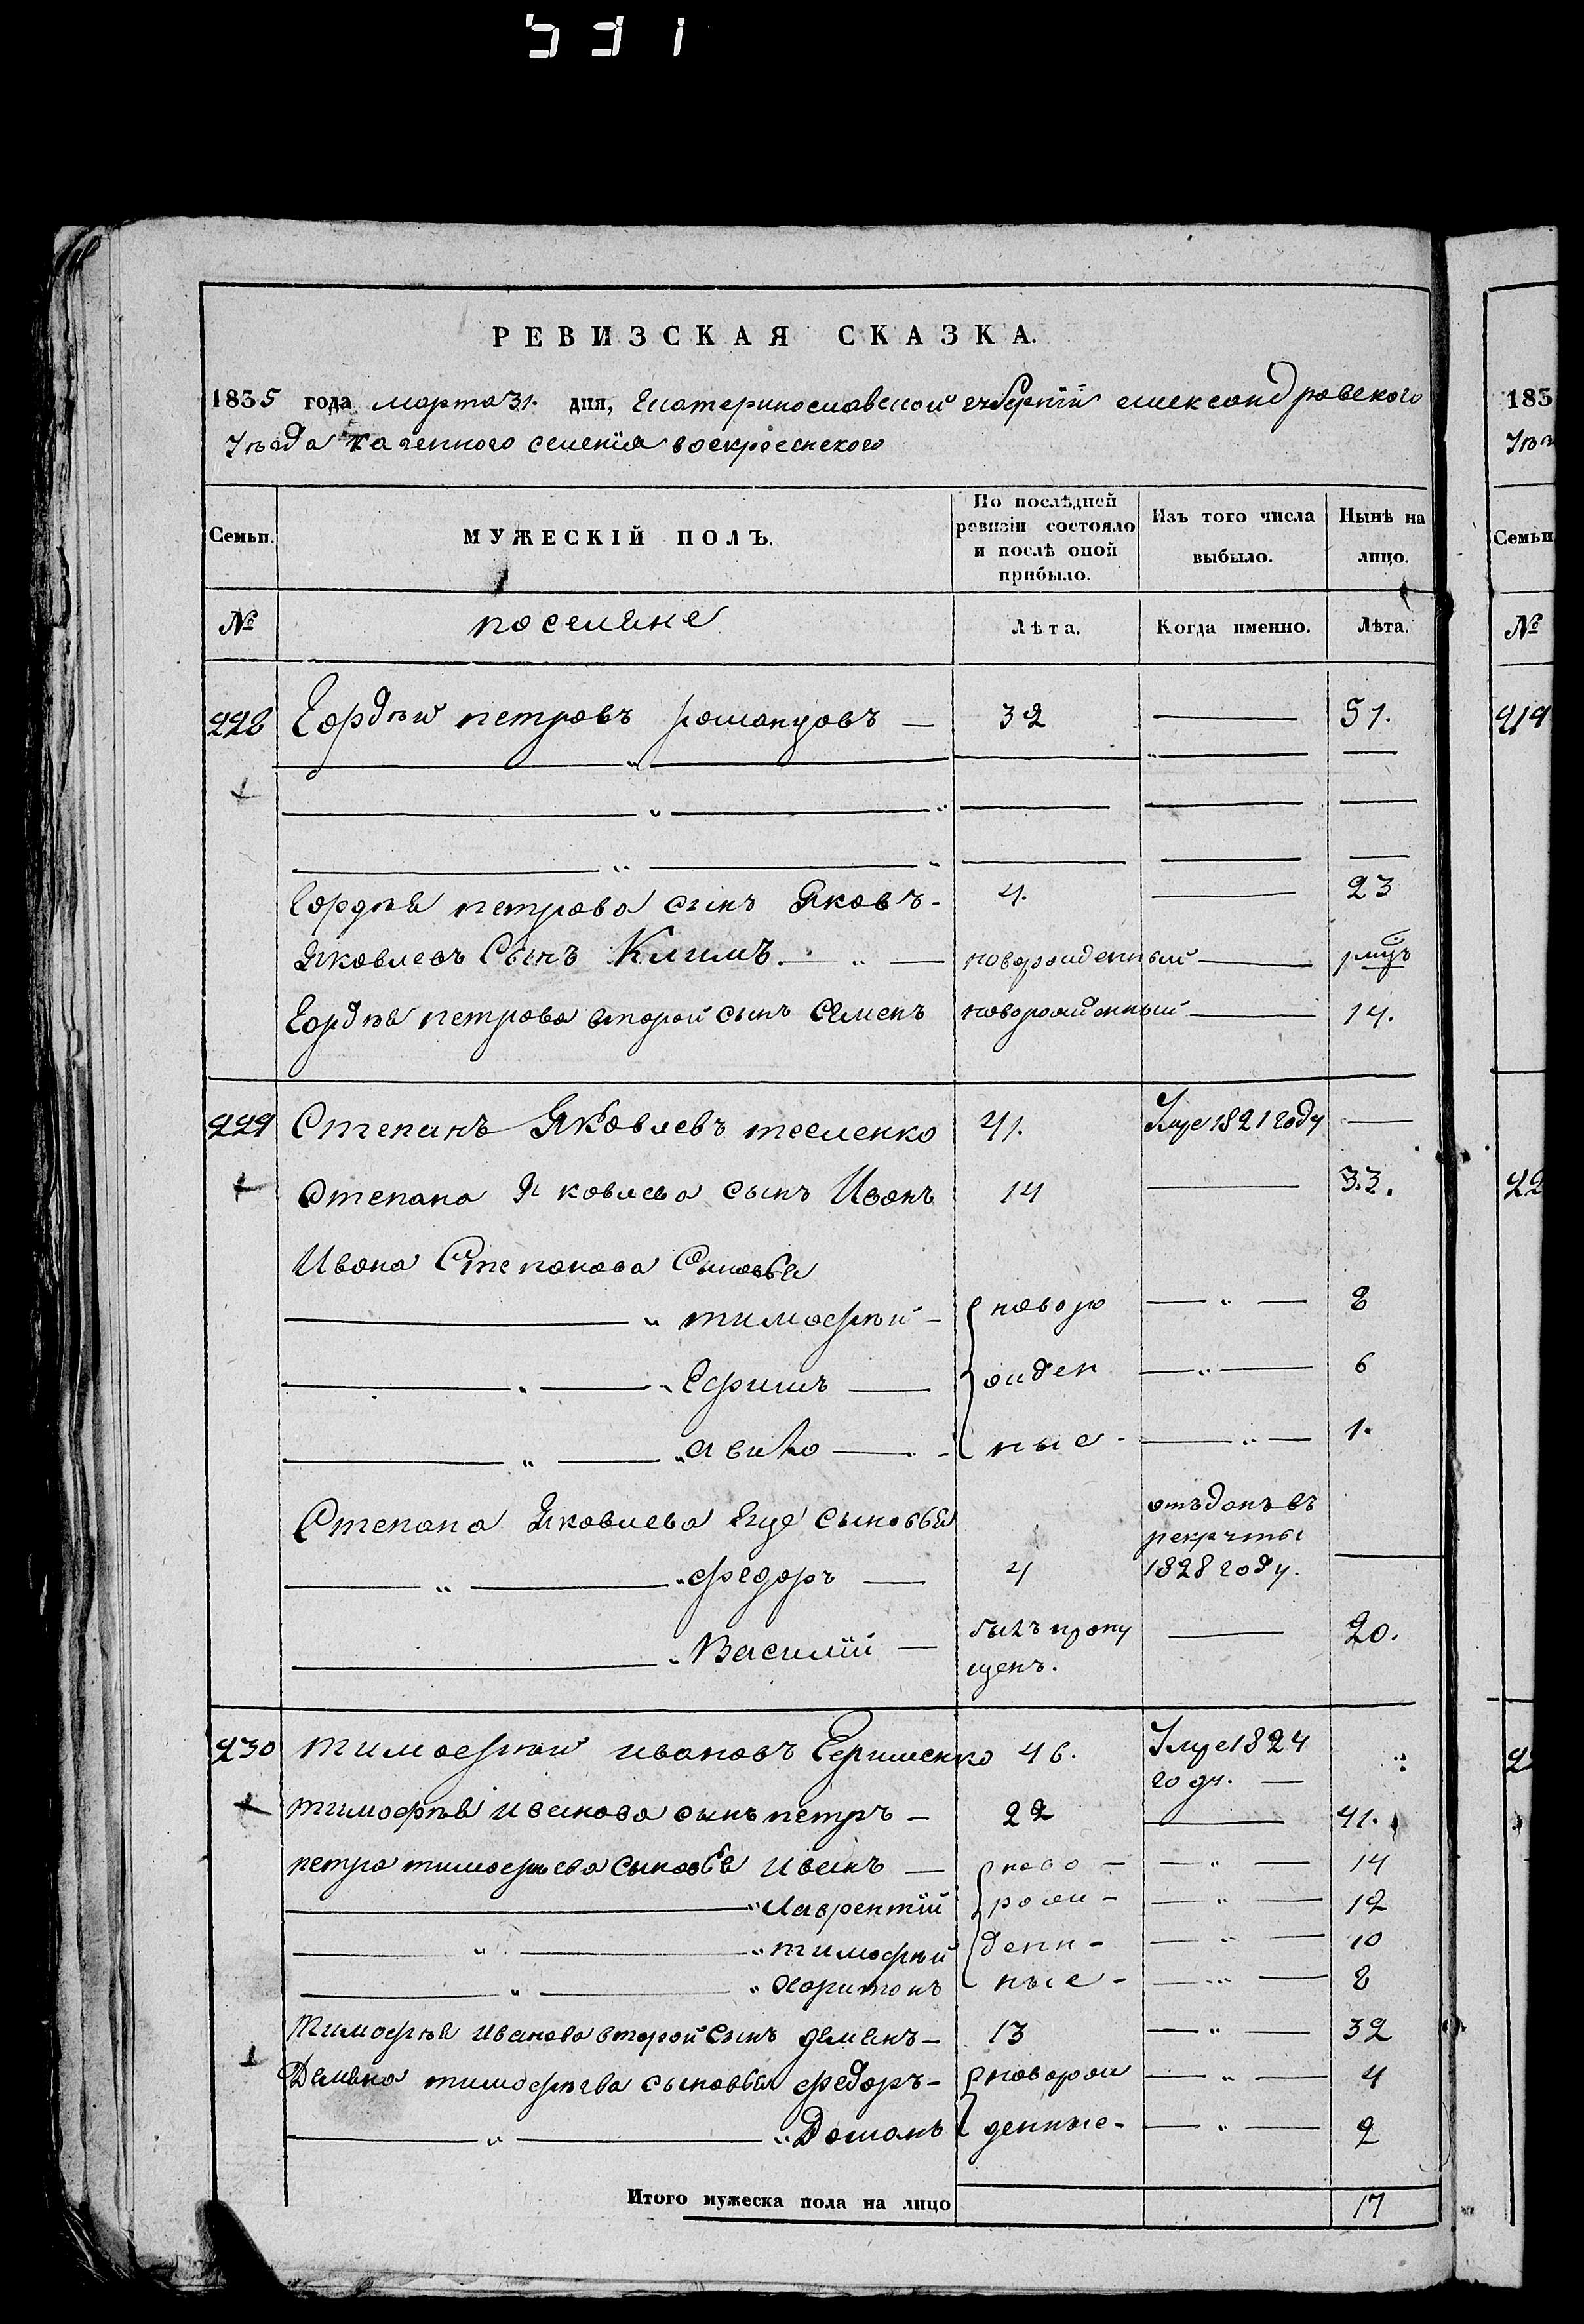 531
РЕВИЗСКАЯ СКАЗКА.
1835 года марта 31. дня, Екатеринославской губернїи александровского
Уѣзда казенного селенїя воскресенского
Семьи. МУЖЕСКІЙ ПОЛЪ. По послѣдней ревизіи состояло и послѣ оной прибыло. Изъ того числа выбыло. Нынѣ на лицо.
№ поселяне Лѣта. Когда именно. Лѣта.
228 Гордѣй петровъ романцовъ — 32 — 51.
Гордѣя петрова сынъ Яковъ - 4. — 23
Яковлевъ Сынъ Климъ — новорожденный —
Гордѣя петрова второй сынъ Семенъ новорожденный — 14.
229 Степанъ Яковлевъ тесленко 41. Умре 1821 году —
Степана Яковлева сынъ Иванъ 14 — 33.
Ивана Степанова Сыновья
тимофѣй - новоро — 8
Ефимъ — жден — 6
савка — ные - — 1.
Степана Яковлева Еще сыновья отъданъ въ
рекруты
федоръ — 4 1828 году. —
Василїй — былъ пропу
щенъ. — 20.
230 тимофѣй ивановъ Ефименко 46. Умре 1824
году. —
тимофѣя иванова сынъ петръ — 22 — 41.
петра тимофѣева сыновья иванъ — ново - — 14
лаврентїй рож - — 12
тимофѣй денн - — 10
харитонъ ные - — 8
Тимофѣя иванова второй сынъ демянъ — 13 — 32
Демяна тимофѣева сыновья федоръ - новорож — 4
Доманъ денные - — 2
Итого мужеска пола на лицо 17
183
Семьи
№
219
22